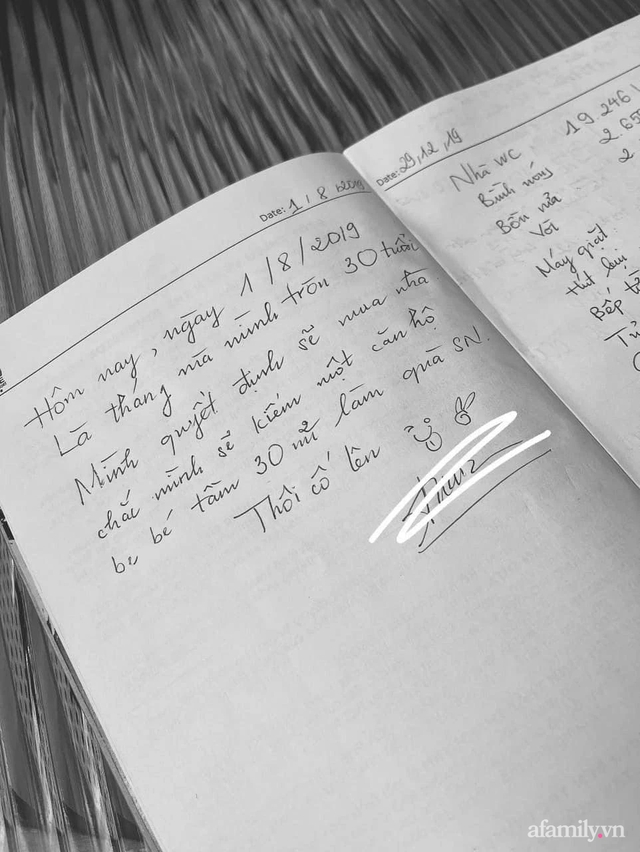 Date: 1 / 8 / 2019
Hôm nay, ngày 1/8/2019
Là tháng nữa mình tròn 30 tuổi
Mình quyết định sẽ mua nhà
chắc mình sẽ kiếm một căn hộ
be bé tầm 30 m² làm quà SN.
Thôi cố lên
Date: 29, 12, 19
Nhà WC 19.246
Bình nóng 2.655
Bồn rửa 2.
Vòi
Máy giặt
Hút
Bếp
afamily.vn